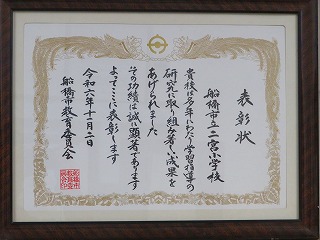 表彰状
船橋市立二宮小学校
貴校は多年にわたり学習指導の
研究に取り組み著しい成果を
あげられました
その功績は誠に顕著であります
よってここに表彰します
令和六年十一月二日
船橋市教育委員会